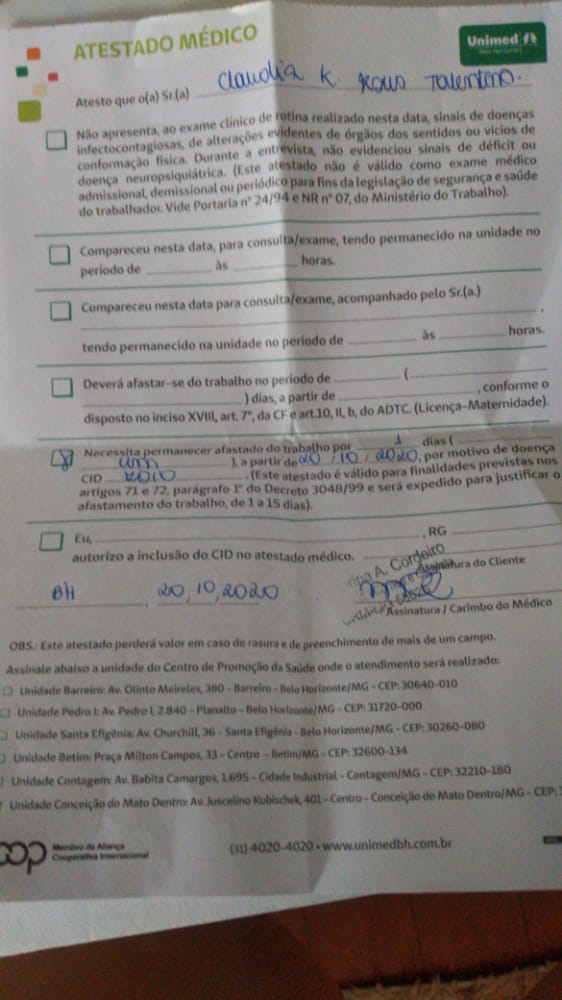 ATESTADO MÉDICO
Unimed
Belo Horizonte
Atesto que o(a) Sr.(a) Claudia K.
Não apresenta, ao exame clínico de rotina realizado nesta data, sinais de doenças
infectocontagiosas, de alterações evidentes de órgãos dos sentidos ou vícios de
conformação física. Durante a entrevista, não evidenciou sinais de déficit ou
doença neuropsiquiátrica. (Este atestado não é válido como exame médico
admissional, demissional ou periódico para fins da legislação de segurança e saúde
do trabalhador. Vide Portaria nº 24/94 e NR nº 07, do Ministério do Trabalho).
Compareceu nesta data, para consulta/exame, tendo permanecido na unidade no
período de ________ às ________ horas.
Compareceu nesta data para consulta/exame, acompanhado pelo Sr.(a.)
________,
tendo permanecido na unidade no período de ________ às ________ horas.
Deverá afastar-se do trabalho no período de ________ (________
________) dias, a partir de ________, conforme o
disposto no inciso XVIII, art. 7º, da CF e art.10, II, b, do ADTC. (Licença-Maternidade).
Necessita permanecer afastado do trabalho por 1 dias (
um ), a partir de 20/10/2020, por motivo de doença
CID ________. (Este atestado é válido para finalidades previstas nos
artigos 71 e 72, parágrafo 1º do Decreto 3048/99 e será expedido para justificar o
afastamento do trabalho, de 1 a 15 dias).
Eu, ________, RG ________
autorizo a inclusão do CID no atestado médico.
A. Cordeiro
Assinatura do Cliente
BH, 20,10,2020
Assinatura / Carimbo do Médico
OBS.: Este atestado perderá valor em caso de rasura e de preenchimento de mais de um campo.
Assinale abaixo a unidade do Centro de Promoção da Saúde onde o atendimento será realizado:
Unidade Barreiro: Av. Olinto Meireles, 380 - Barreiro - Belo Horizonte/MG - CEP: 30640-010
Unidade Pedro I: Av. Pedro I, 2.840 - Planalto - Belo Horizonte/MG - CEP: 31720-000
Unidade Santa Efigênia: Av. Churchill, 36 - Santa Efigênia - Belo Horizonte/MG - CEP: 30260-080
Unidade Betim: Praça Milton Campos, 33 - Centro - Betim/MG - CEP: 32600-134
Unidade Contagem: Av. Babita Camargos, 1.695 - Cidade Industrial - Contagem/MG - CEP: 32210-180
Unidade Conceição do Mato Dentro: Av. Juscelino Kubischek, 401 - Centro - Conceição do Mato Dentro/MG - CEP:
Membro da Aliança
Cooperativa Internacional
(31) 4020-4020 • www.unimedbh.com.br